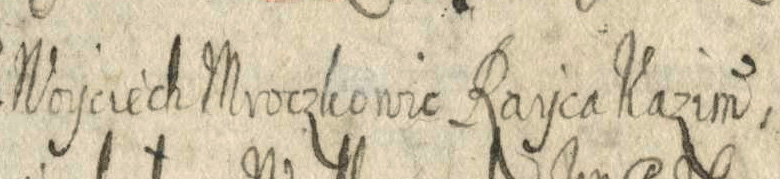 Woyciech Mroczkowic Rayca Kazim̃,